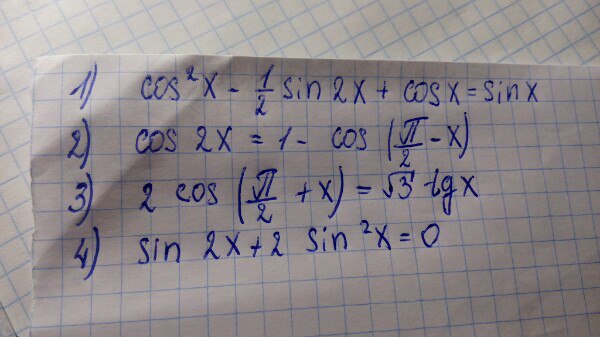 1) cos²x - 1/2 sin 2x + cosx = sinx
2) cos 2x = 1 - cos (π/2 - x)
3) 2 cos (π/2 + x) = √3 tg x
4) sin 2x + 2 sin²x = 0